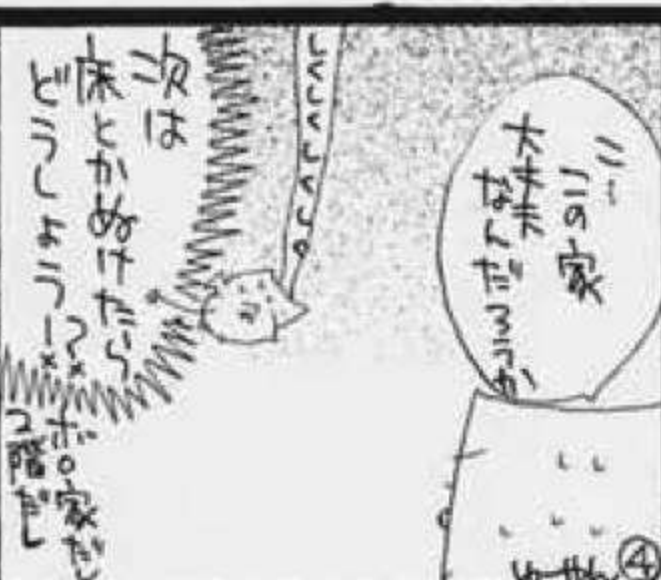 こ…
この家
大丈夫
なんだろうか
しくしくしくしくしくしく。
次は
床とかぬけたら
どうしよう…？
ボロ家だし
2階だし
④